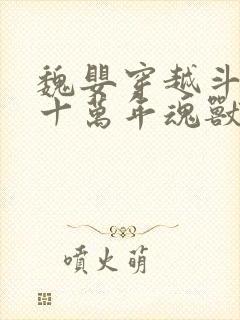 魏嬰穿越斗
十萬年魂獸
噴火萌